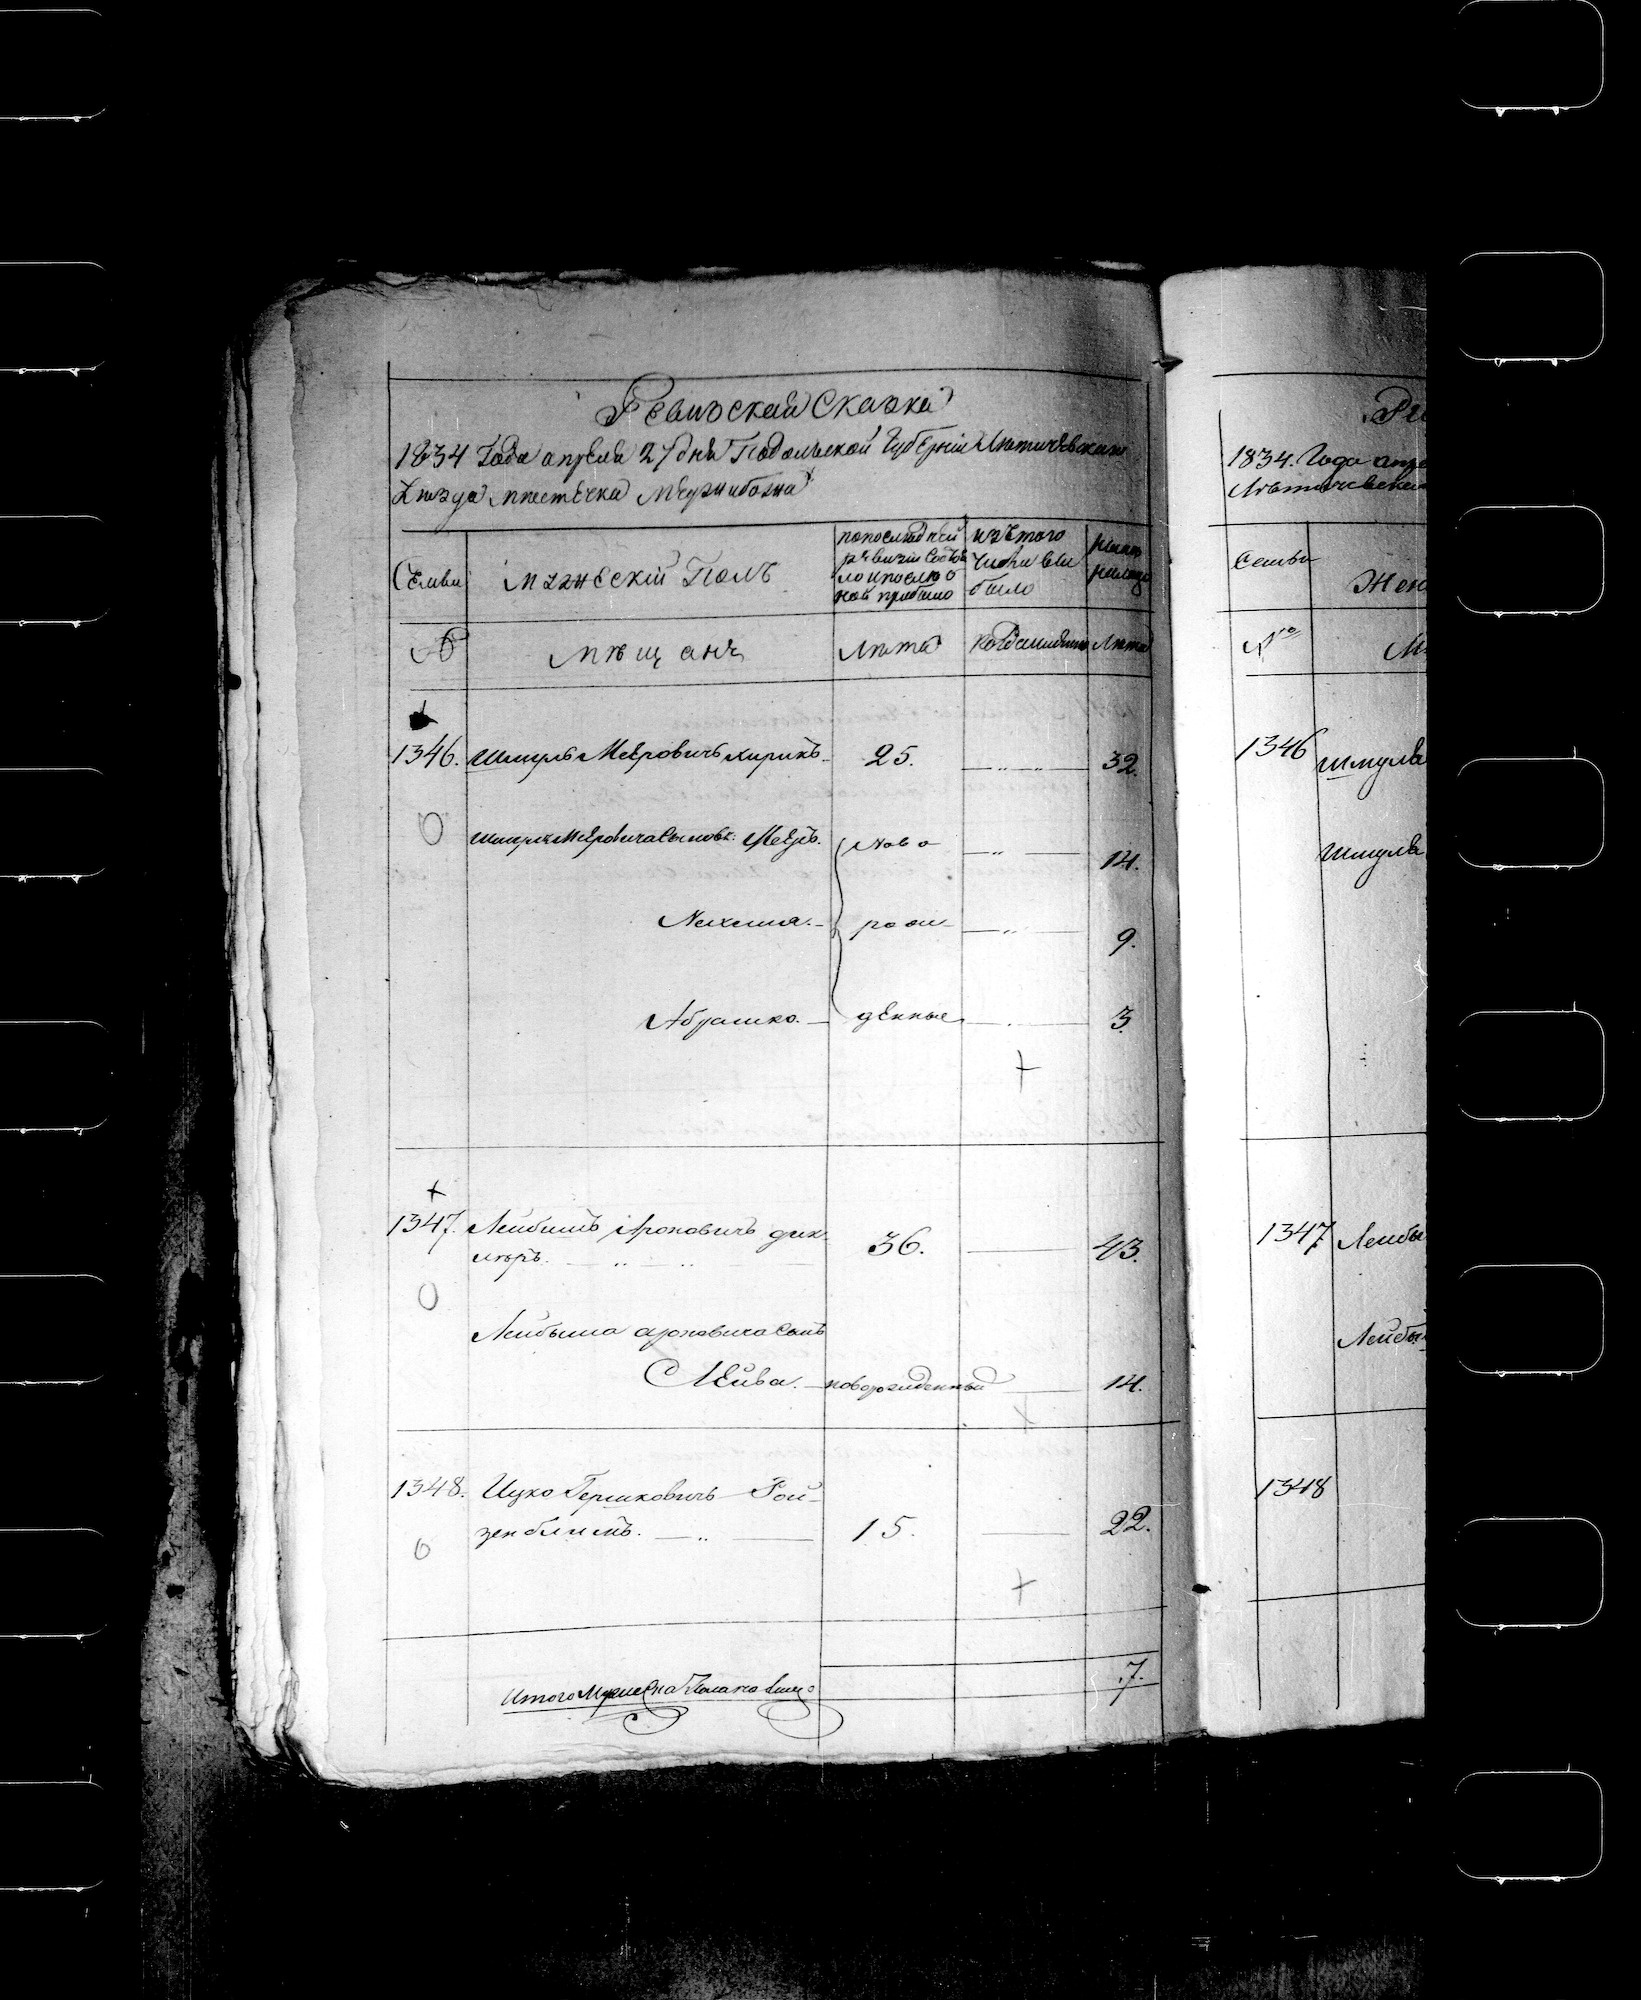 Ревизская Сказка
1834 Года апреля 27 дня Подольской Губернiи Летичевскаго
Уезда местечка Меджибожа
Семьи
мужескiй Полъ
по последней
ревизiи состоя
ло и после о
ной прибыло
изъ того
числа вы
было
ныне
налицо
№
мѣщанъ
Лета
когда именно
Лета
1346. Шмуль Мееровичъ Лирикъ 25. 32.
Шмуля Мееровича сыновья: Мееръ. ново 14.
Нехемия. рож 9.
Абрамко. денные 3.
1347. Лейбышъ Ароновичъ дик
леръ. 36. 43.
Лейбыша ароновича сынъ
Лейва. новорожденный 14.
1348. Ицко Гершковичъ Рой
зенблитъ. 15. 22.
Итого Мужеска Пола на лицо 7.
1834. Года апре
Летичевска
Семьи
Жен
№
1346 Шмуля
Шмуля
1347 Лейбы
Лейбы
1348